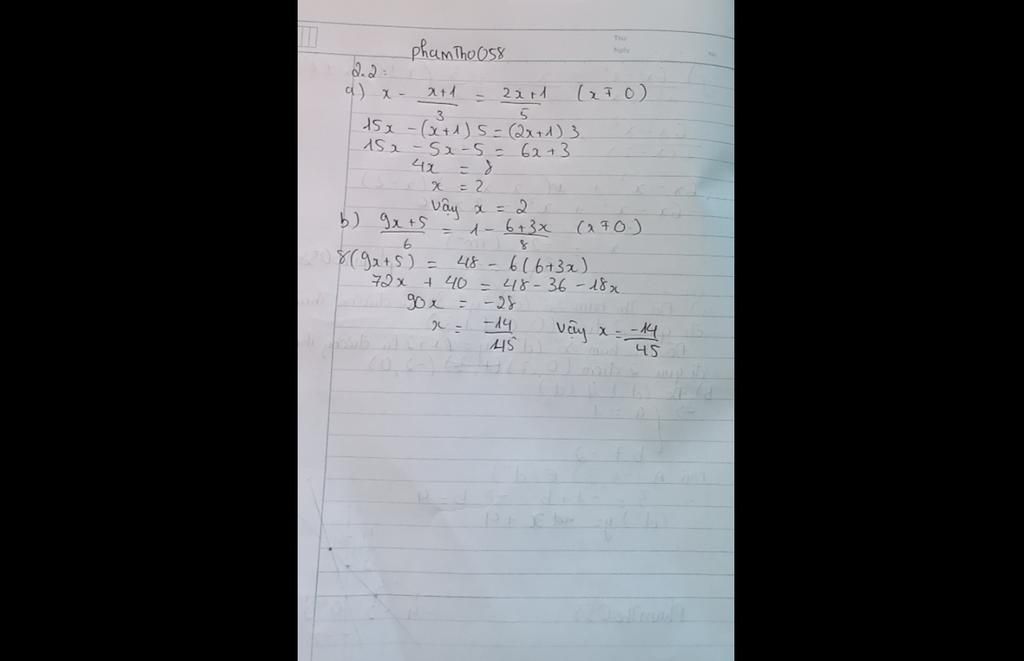 phamTho058
2.2:
a) x - \frac{x+1}{3} = \frac{2x+1}{5} (x ≠ 0)
15x - (x+1) 5 = (2x+1) 3
15x - 5x - 5 = 6x + 3
4x = 8
x = 2
Vậy x = 2
b) \frac{9x+5}{6} = 1 - \frac{6+3x}{8} (x ≠ 0)
8(9x+5) = 48 - 6(6+3x)
72x + 40 = 48 - 36 - 18x
90x = -28
x = \frac{-14}{45} Vậy x = \frac{-14}{45}